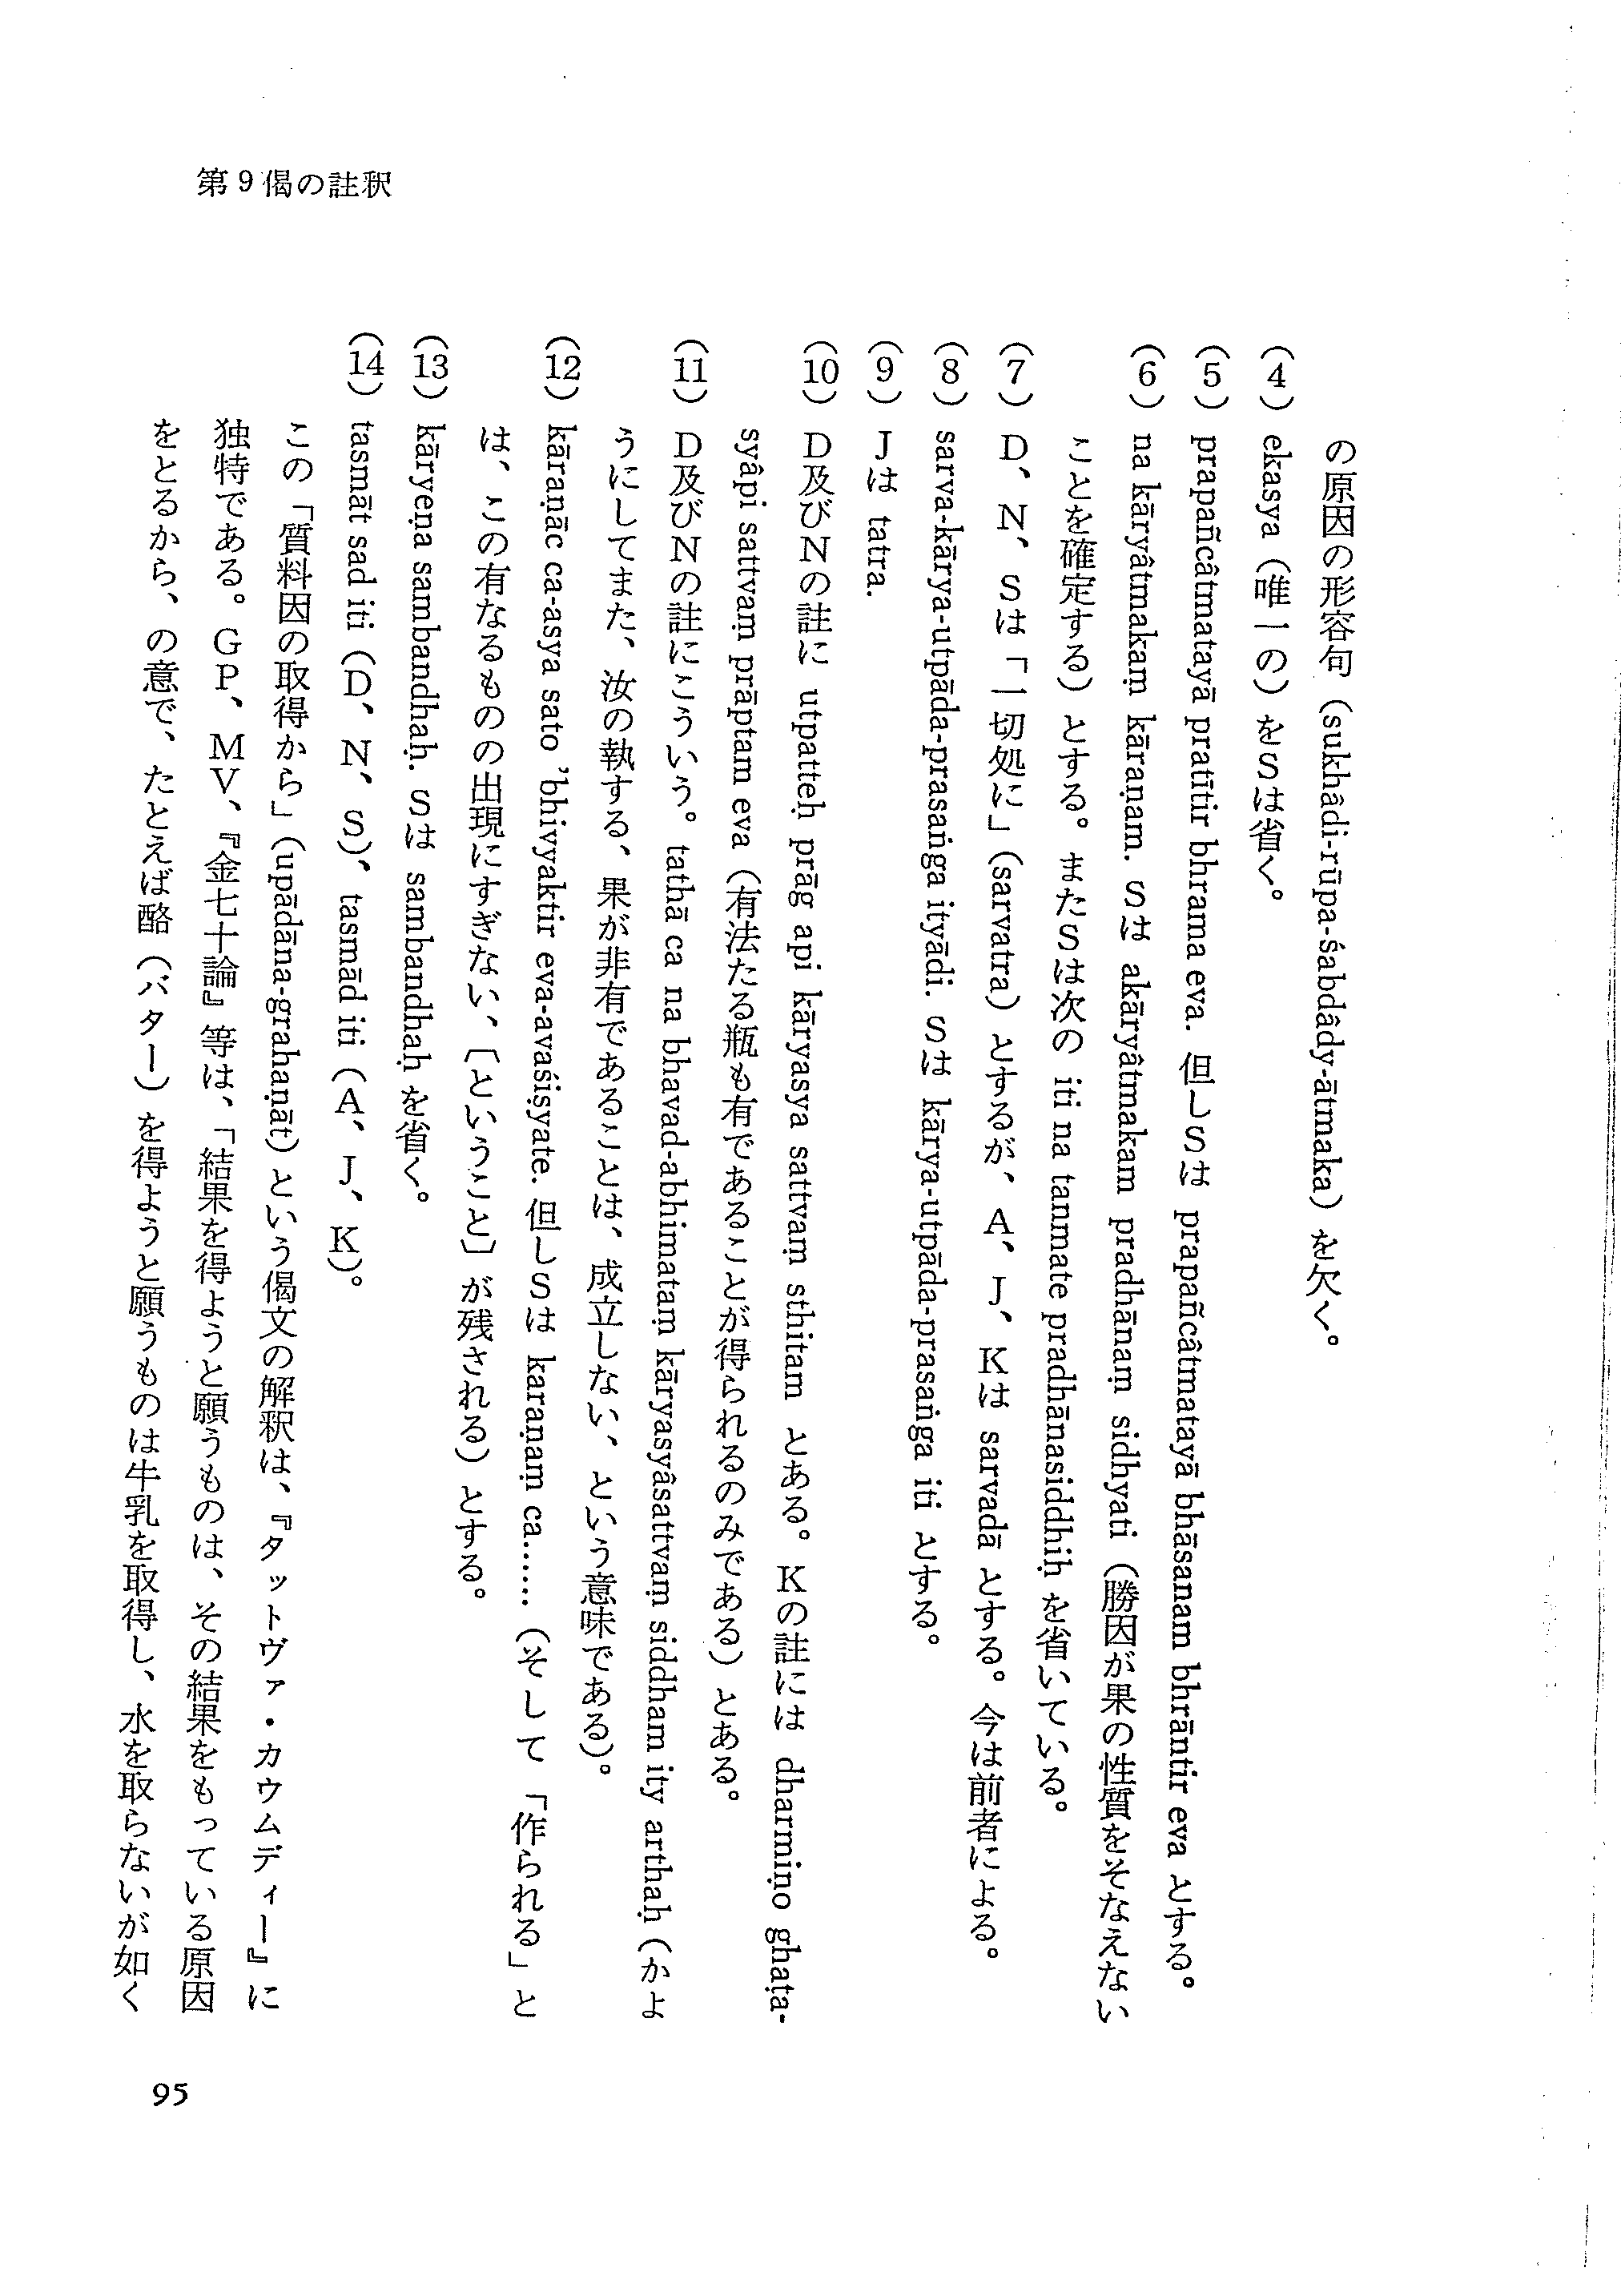 第9偈の註釈
の原因の形容句（sukhâdi-rūpa-śabdâdy-ātmaka）を欠く。
（4）ekasya（唯一の）をSは省く。
（5）prapañcâtmatayā pratītir bhrama eva. 但しSは prapañcâtmatayā bhāsanam bhrāntir eva とする。
（6）na kāryâtmakaṃ kāraṇam. Sは akāryâtmakam pradhānaṃ sidhyati（勝因が果の性質をそなえない
ことを確定する）とする。またSは次の iti na tanmate pradhānasiddhiḥ を省いている。
（7）D、N、Sは「一切処に」（sarvatra）とするが、A、J、Kは sarvadā とする。今は前者による。
（8）sarva-kārya-utpāda-prasaṅga ityādi. Sは kārya-utpāda-prasaṅga iti とする。
（9）Jは tatra.
（10）D及びNの註に utpatteḥ prāg api kāryasya sattvaṃ sthitam とある。Kの註には dharmiṇo ghaṭa-
syâpi sattvaṃ prāptam eva（有法たる瓶も有であることが得られるのみである）とある。
（11）D及びNの註にこういう。tathā ca na bhavad-abhimataṃ kāryasyâsattvaṃ siddham ity arthaḥ（かよ
うにしてまた、汝の執する、果が非有であることは、成立しない、という意味である）。
（12）kāraṇāc ca-asya sato 'bhivyaktir eva-avaśiṣyate. 但しSは karaṇaṃ ca……（そして「作られる」と
は、この有なるものの出現にすぎない、〔ということ〕が残される）とする。
（13）kāryeṇa sambandhaḥ. Sは sambandhaḥ を省く。
（14）tasmāt sad iti（D、N、S）、tasmād iti（A、J、K）。
この「質料因の取得から」（upādāna-grahaṇāt）という偈文の解釈は、『タットヴァ・カウムディー』に
独特である。GP、MV、『金七十論』等は、「結果を得ようと願うものは、その結果をもっている原因
をとるから、の意で、たとえば酪（バター）を得ようと願うものは牛乳を取得し、水を取らないが如く
95